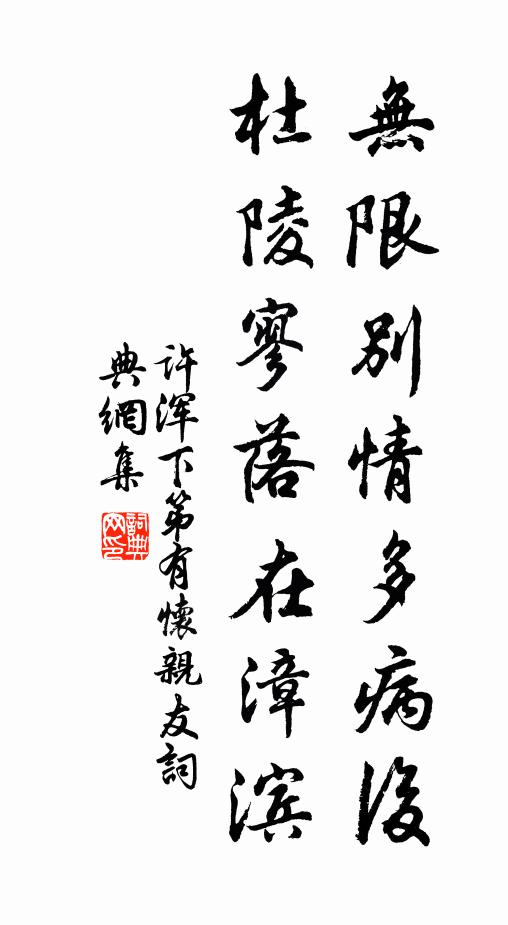 無限別情多病後
杜陵寥落在漳滨
许渾下第有懷親友詞
典網集
詞典
网印